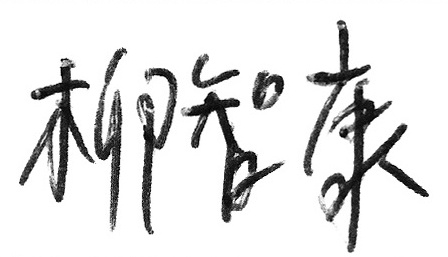 柳智康